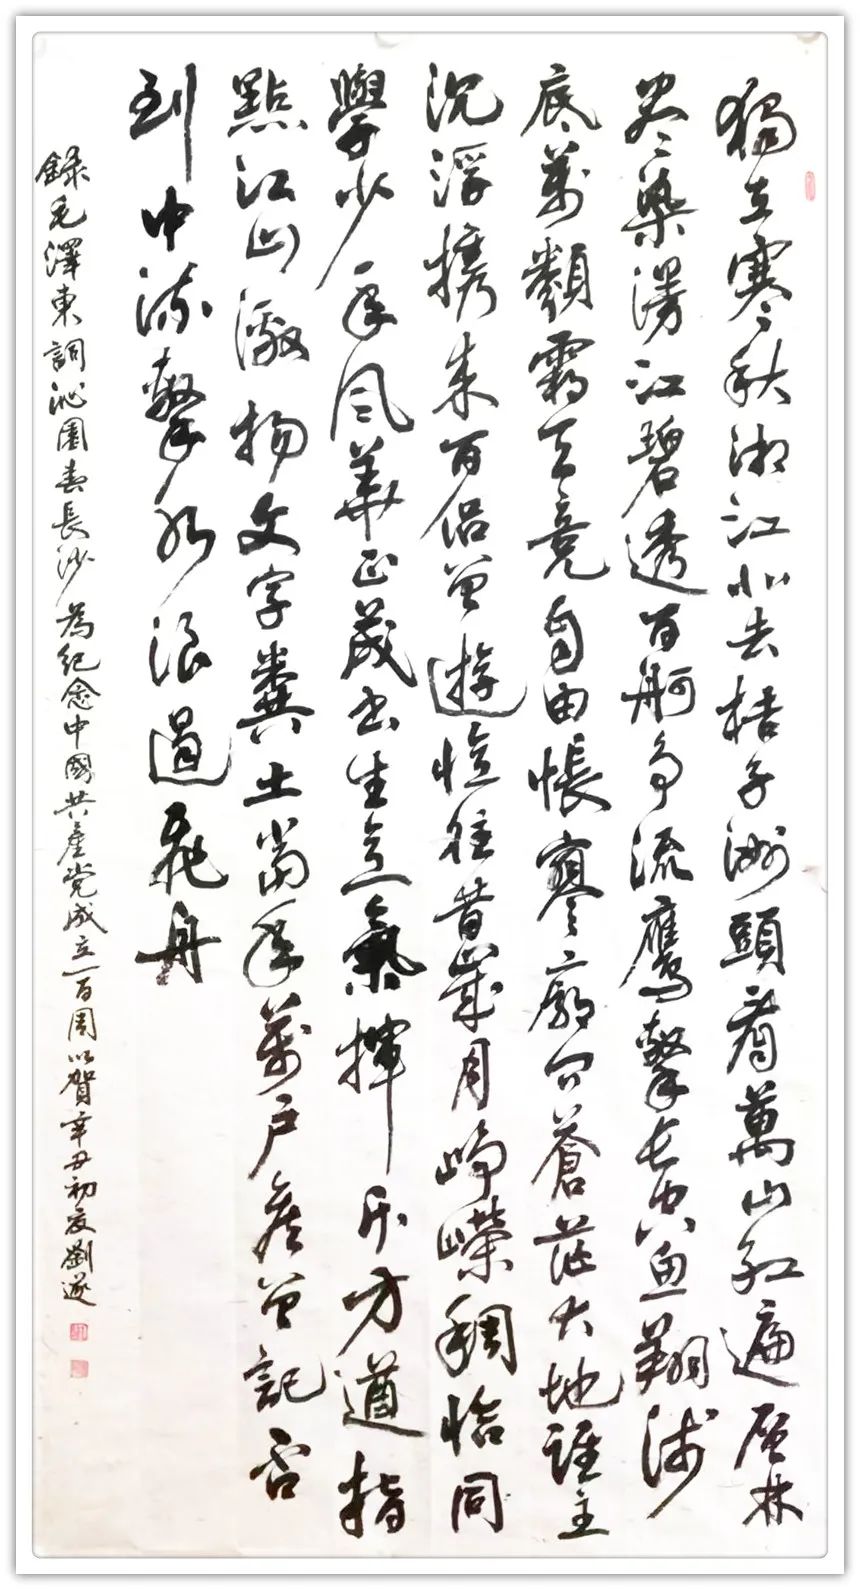 獨立寒秋湘江北去桔子洲頭看萬山红遍层林
尽染漫江碧透百舸争流鹰擊长空鱼翔浅
底萬類霜天竞自由悵寥廓问蒼茫大地誰主
沉浮携来百侣曾遊憶往昔歲月崢嶸稠恰同
學少年风華正茂书生意氣揮斥方遒指
點江山激扬文字糞土當年萬户侯曾記否
到中流擊水浪遏飛舟
錄毛澤東詞沁園春長沙為紀念中國共產党成立一百周以賀辛丑初夏劉遂